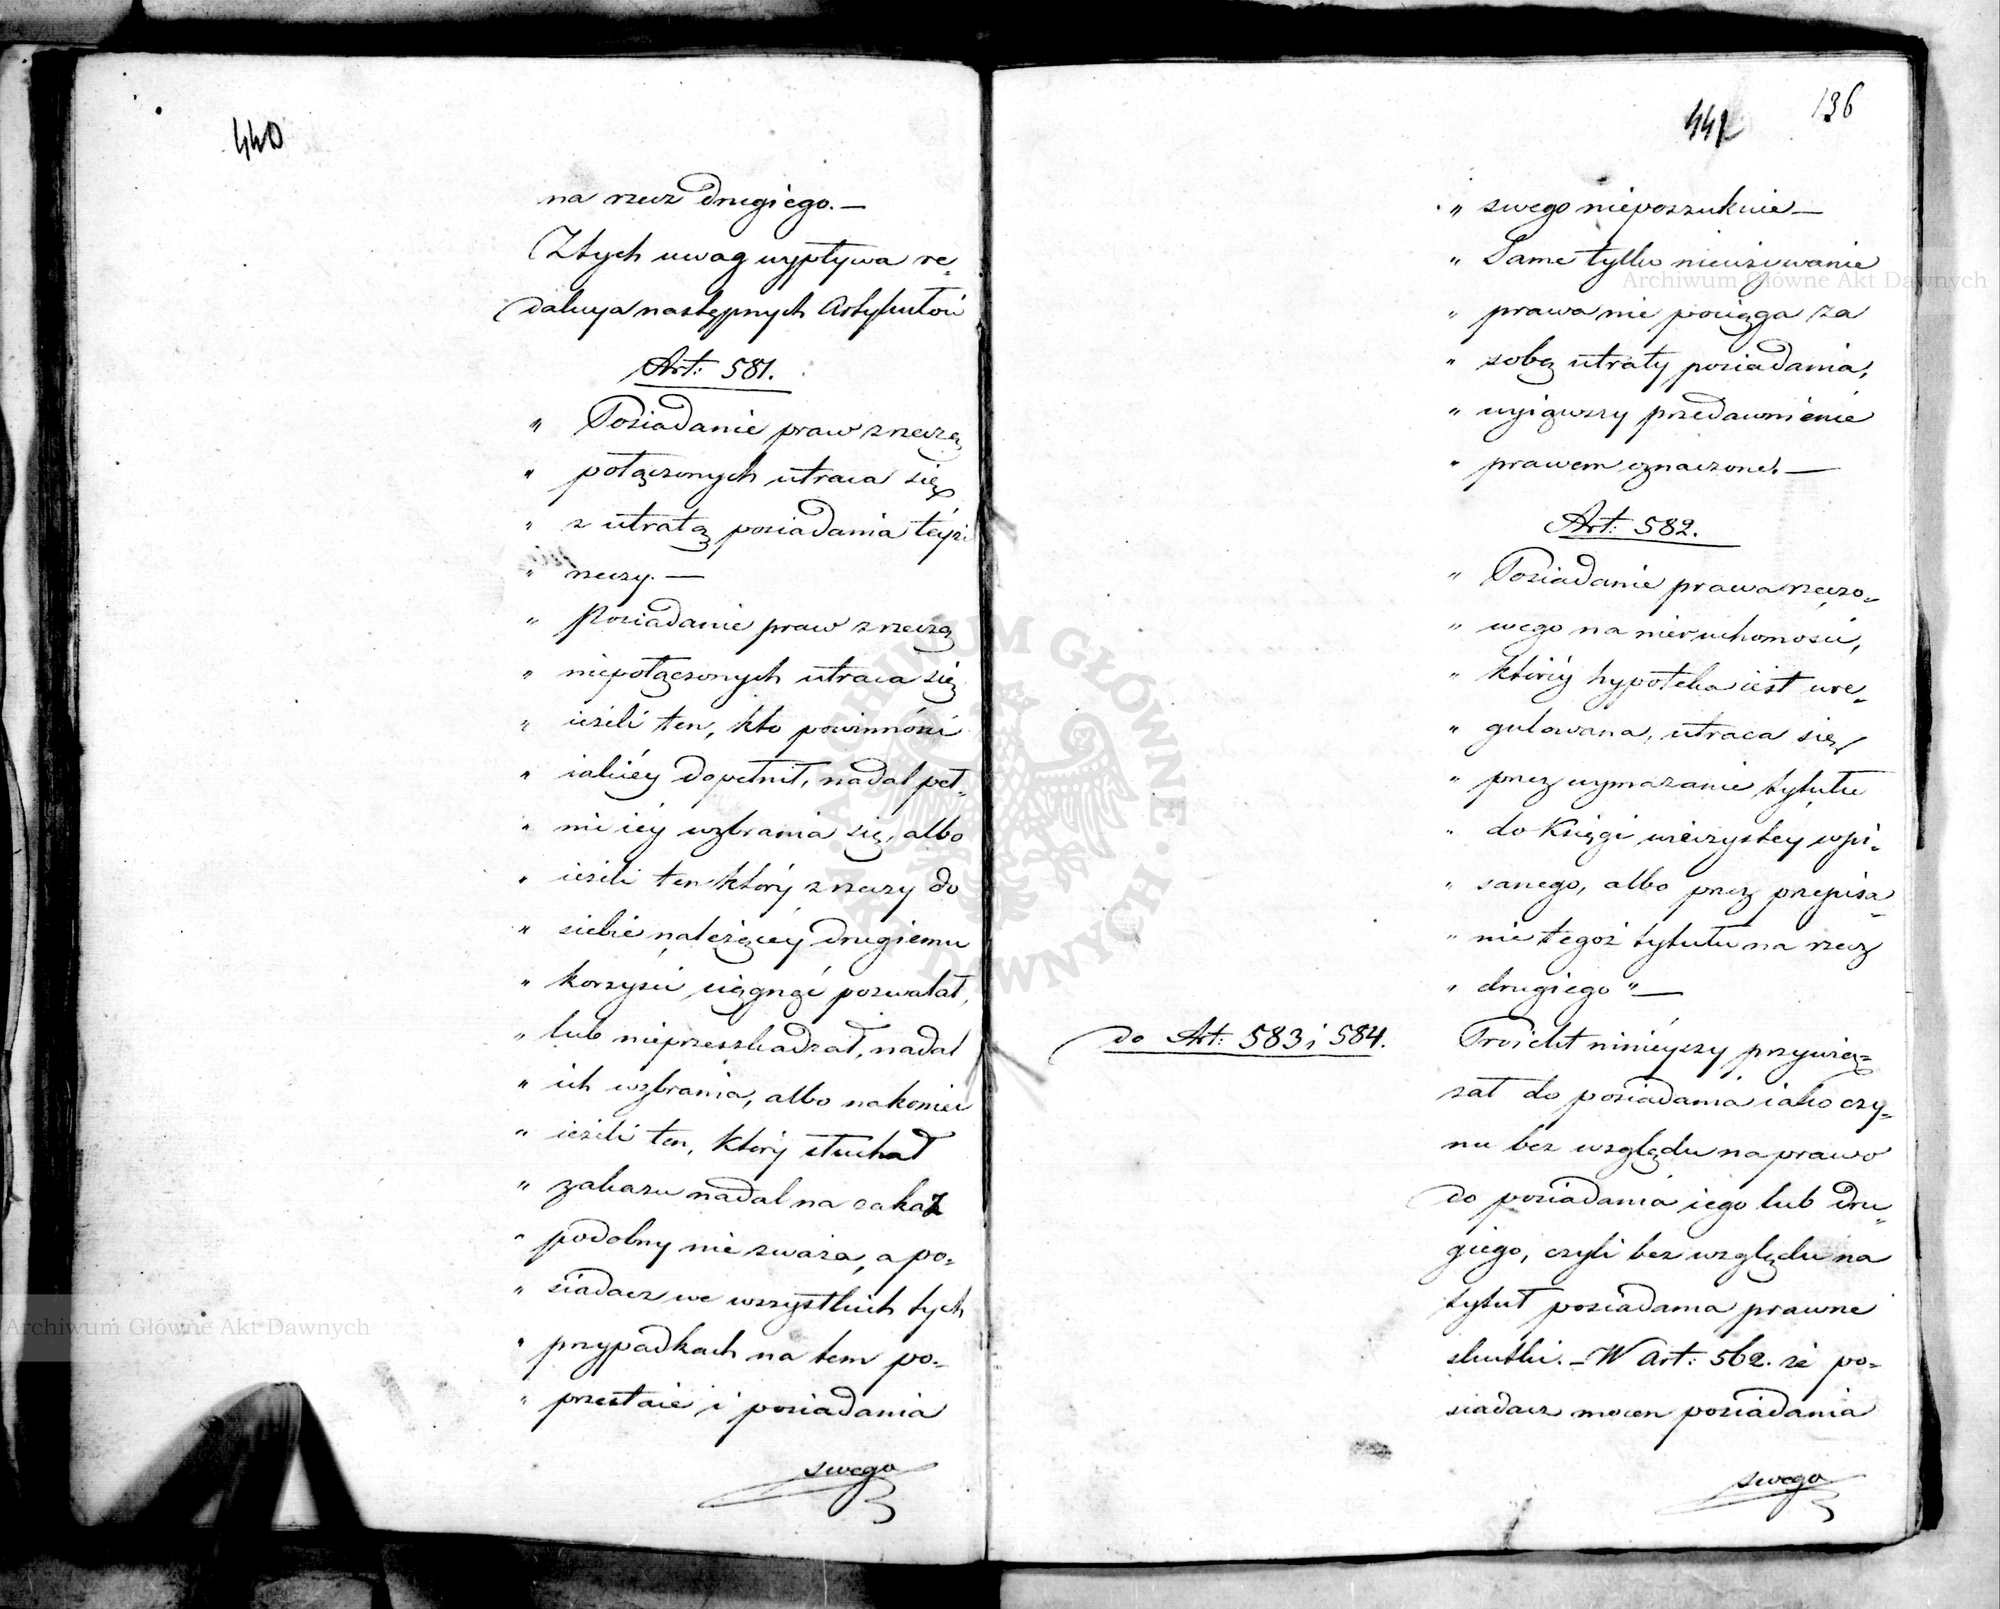 440
na rzecz drugiego. —
Z tych uwag wypływa re-
dakcya następnych Artykułów
Art: 581.
" Posiadanie praw z rzeczą
" połączonych utraca się
" z utratą posiadania téyże
" rzeczy. —
" Posiadanie praw z rzeczą
" niepołączonych utraca się
" ieżeli ten, kto powinności
" iakiéy dopełnił, nadal peł-
" nić iéy wzbrania się, albo
" ieżeli ten który z rzeczy do
" siebie należącéy drugiemu
" korzyści ciągnąć pozwalał,
" lub nieprzeszkadzał, nadal
" ich wzbrania, albo nakoniec
" ieżeli ten, który słuchał
" zakazu nadal na zakaz
" podobny nie zważa, a po-
" siadacz we wszystkich tych
" przypadkach na tem po-
" przestaie i posiadania
swego
136
441
" swego nieposzukuie —
" Same tylko nieużywanie
" prawa nie pociąga za
" sobą utraty posiadania,
" wyiąwszy przedawnienie
" prawem oznaczone. —
Art: 582.
" Posiadanie prawa rzeczo-
" wego na nieruchomości,
" któréy hypoteka iest ure-
" gulowana, utraca się
" przez wymazanie tytułu
" do Księgi wieczystéy wpi-
" sanego, albo przez przepisa-
" nie tegoż tytułu na rzecz
" drugiego " —
do Art: 583 i 584.
Proiekt ninieyszy przywią-
zał do posiadania iako czy-
nu bez względu na prawo
do posiadania iego lub dru-
giego, czyli bez względu na
tytuł posiadania prawne
skutki. — W Art: 562. że po-
siadacz mocen posiadania
swego
Archiwum Główne Akt Dawnych
Archiwum Główne Akt Dawnych
ARCHIWUM GŁÓWNE · AKT DAWNYCH ·